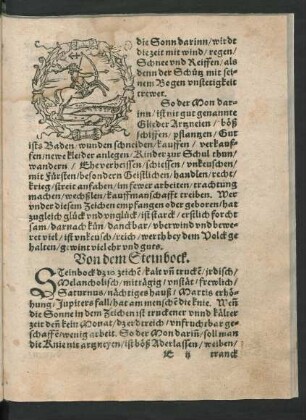 die Sonn darinn/ wirdt
die zeit mit wind/ regen/
Schnee vnd Reiffen/ als
denn der Schütz mit sei-
nem Bogen vnstetigkeit
trewet.
So der Mon dar-
inn/ ist nit gut genannte
Glieder Artzneien/ böß
schiffen/ pflantzen/ Gut
ists Baden/ wunden schneiden/ kauffen/ verkauf-
fen/ newe kleider anlegen/ Kinder zur Schul thun/
wandern/ Eheverheissen/ schiessen/ vnkeuschen/
mit Fürsten/ besondern Geistlichen/ handlen/ recht/
krieg/ streit anfahen/ im fewer arbeiten/ trachtung
machen/ wechßlen/ kauffmanschafft treiben. Wer
vnder diesem Zeichen empfangen oder geboren/ hat
zugleich glück vnd vnglück/ ist starck/ erstlich forcht
sam/ darnach kün/ danckbar/ vberwind vnd bewe-
ret viel/ ist vnkeusch/ reich/ werth bey dem Volck ge
halten/ gewint viel ehr vnd guts.
Von dem Steinbock.
STeinbock dz 10 zeichē/ kalt vn̄ truckē/ jrdisch/
Melancholisch/ mittägig/ vnstät/ frewlich/
Saturnus/ nächtiges hauß/ Martis erhö-
hung/ Jupiters fall/ hat am menschē die knie. Weñ
die Sonne in dem Zeichen ist truckener vnnd kälter
zeit deñ kein Monat/ dz erdtreich/ vnfruchtbar ge-
schaffē/ wenig arbeit. So der Mon dariñ/ soll man
die Knie nit artzneyen/ ist böß Aderlassen/ weiben/
ij tranck